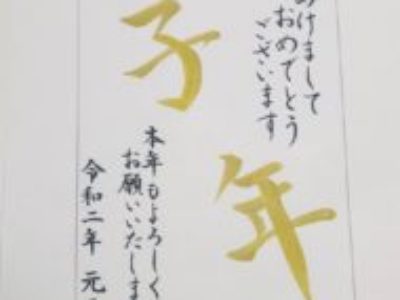 けまして
おめでとう
ございます
子年
本年もよろしく
お願いいたしま
令和二年 元